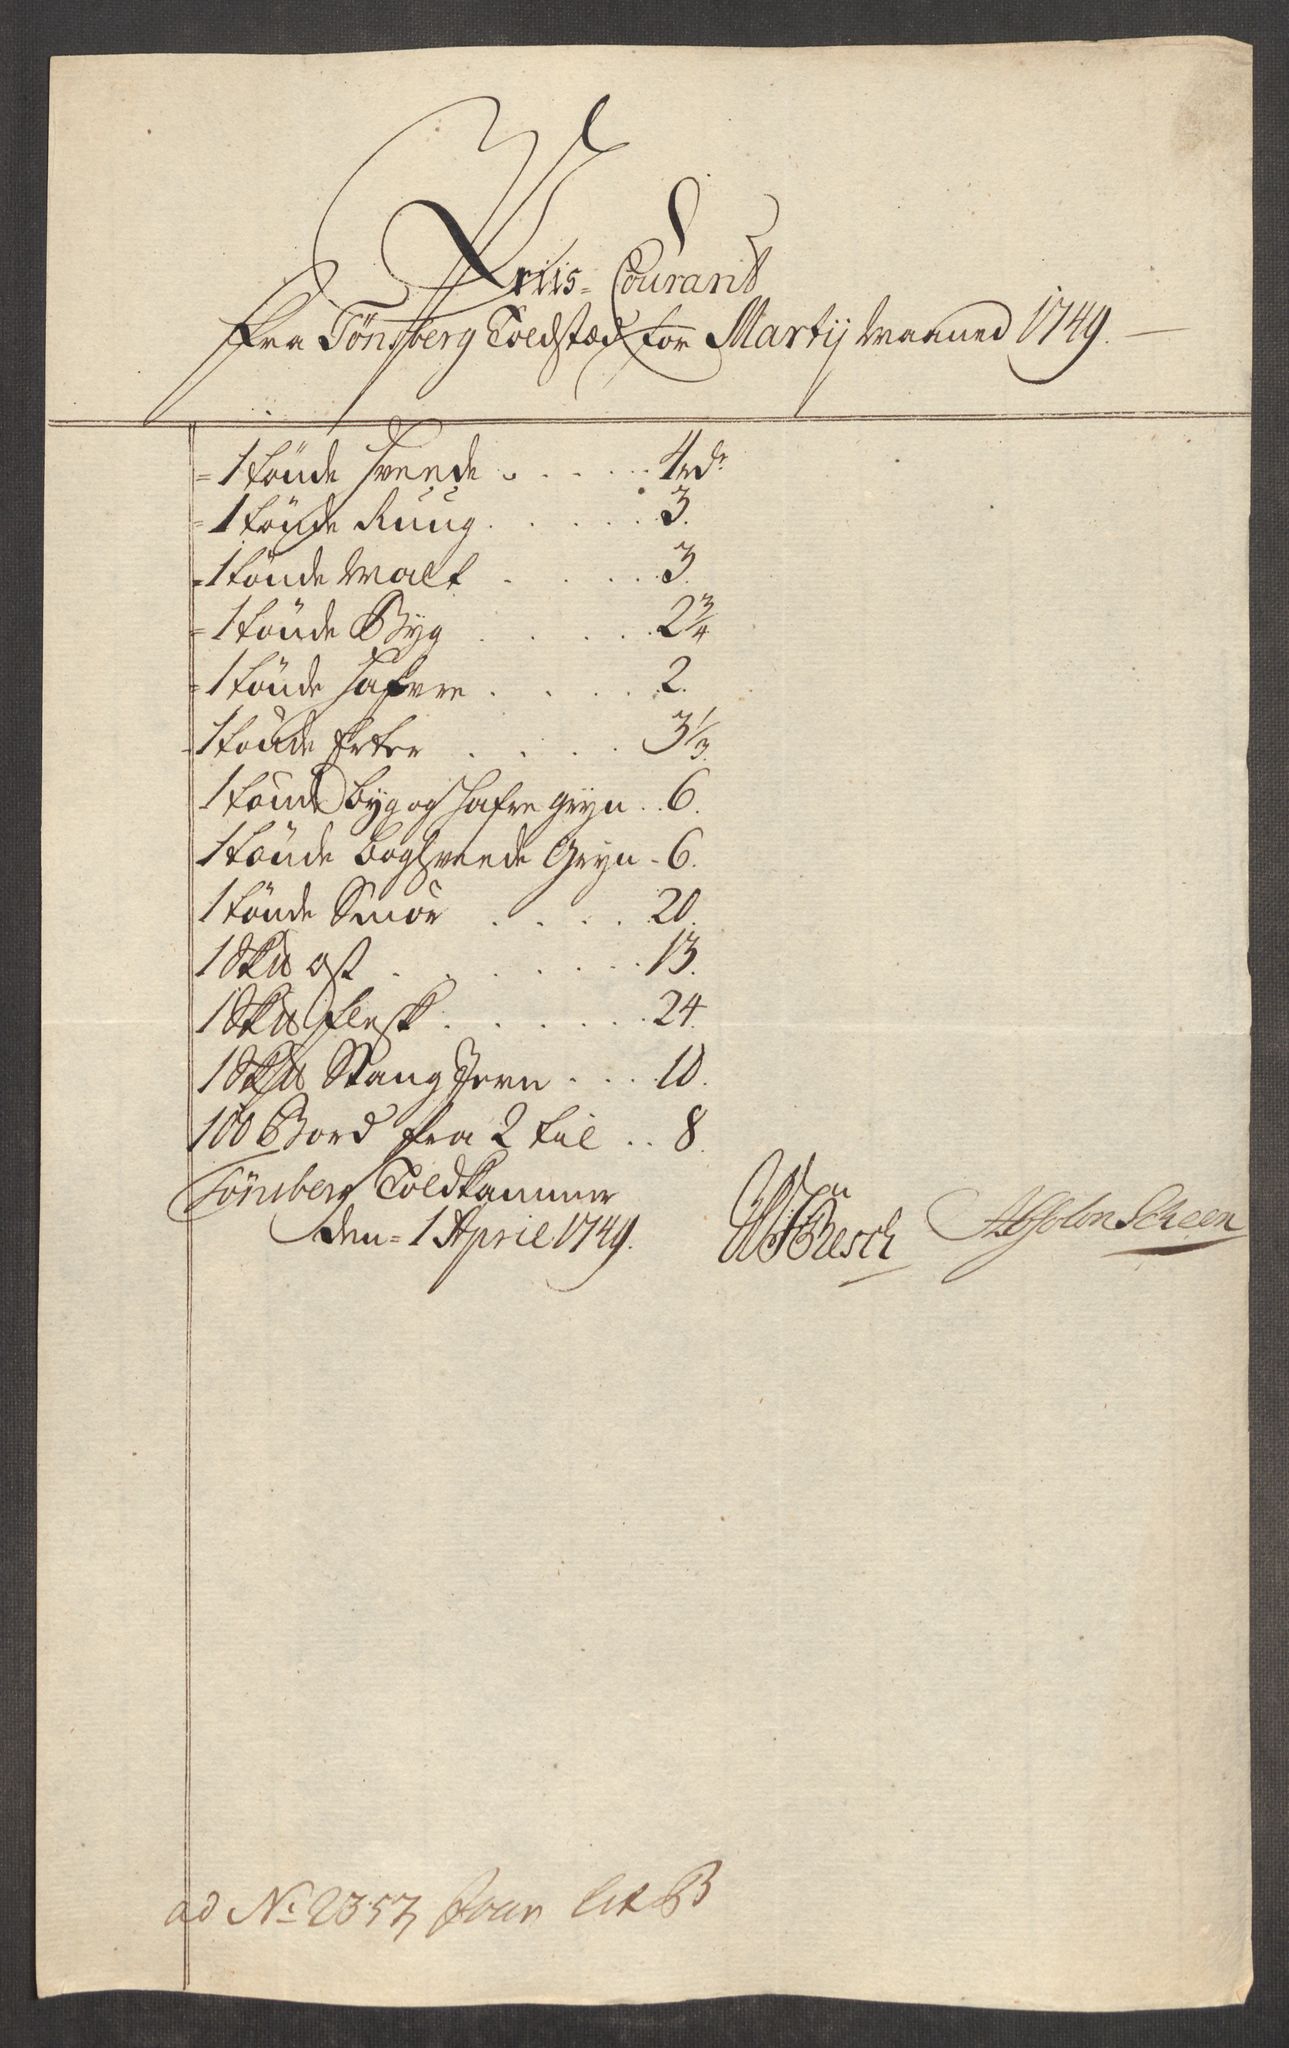 Priis- Courant
fra Tönsberg Toldsted for Martij Maaned 1749.
1 tönde Hvede . . . . . 4 rdr
1 tönde Ruug . . . . . 3.
1 tönde Malt . . . . 3
1 tönde Byg . . . . . 2 3/4
1 tönde Hafvre . . . . 2.
1 tönde Erter . . . . 3 1/3.
1 tönde byg og Hafre gryn . . 6.
1 tönde boghveede Gryn - 6.
1 tönde Smör . . . . 20.
1 Sk℔ ost . . . . . . . 13.
1 Sk℔ flesk . . . . . . 24.
1 Sk℔ Stang Jern . . . 10.
100 Bord fra 2 til . . 8.
Tönsberg Toldkammer
den- 1 April 1749.
Résch Absolon Scheen
ad No. 2357 Jour Lit B